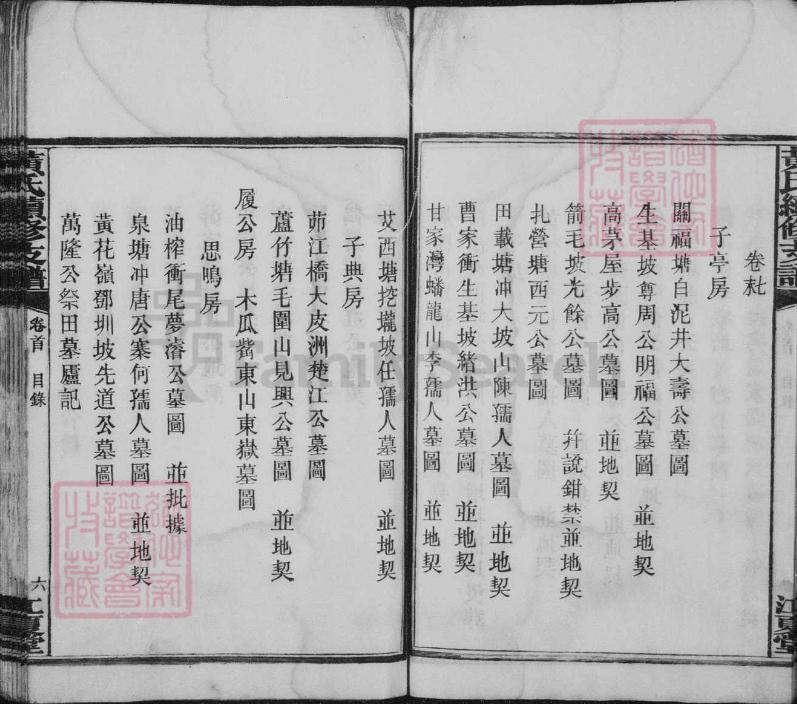 黃氏續修支譜
江夏堂
卷末
子亭房
關福塘白泥井大壽公墓圖
生基坡尊周公明福公墓圖 並地契
高茅屋步高公墓圖 並地契
箭毛坡光餘公墓圖 并說鉗禁並地契
扎營塘西元公墓圖
田載塘冲大坡山陳孺人墓圖 並地契
曹家衝生基坡緒洪公墓圖 並地契
甘家灣蟠龍山李孺人墓圖 並地契
艾西塘挖壠坡任孺人墓圖 並地契
子典房
茆江橋大皮洲楚江公墓圖
蘆竹塘毛圍山見興公墓圖 並地契
履公房 木瓜觜東山東嶽墓圖
思鳴房
油榨衝尾夢濬公墓圖 並批據
泉塘冲唐公寨何孺人墓圖 並地契
黃花嶺鄧圳坡先道公墓圖
萬隆公祭田墓廬記
黃氏續修支譜
卷首 目錄
六
江夏堂
FamilySearch